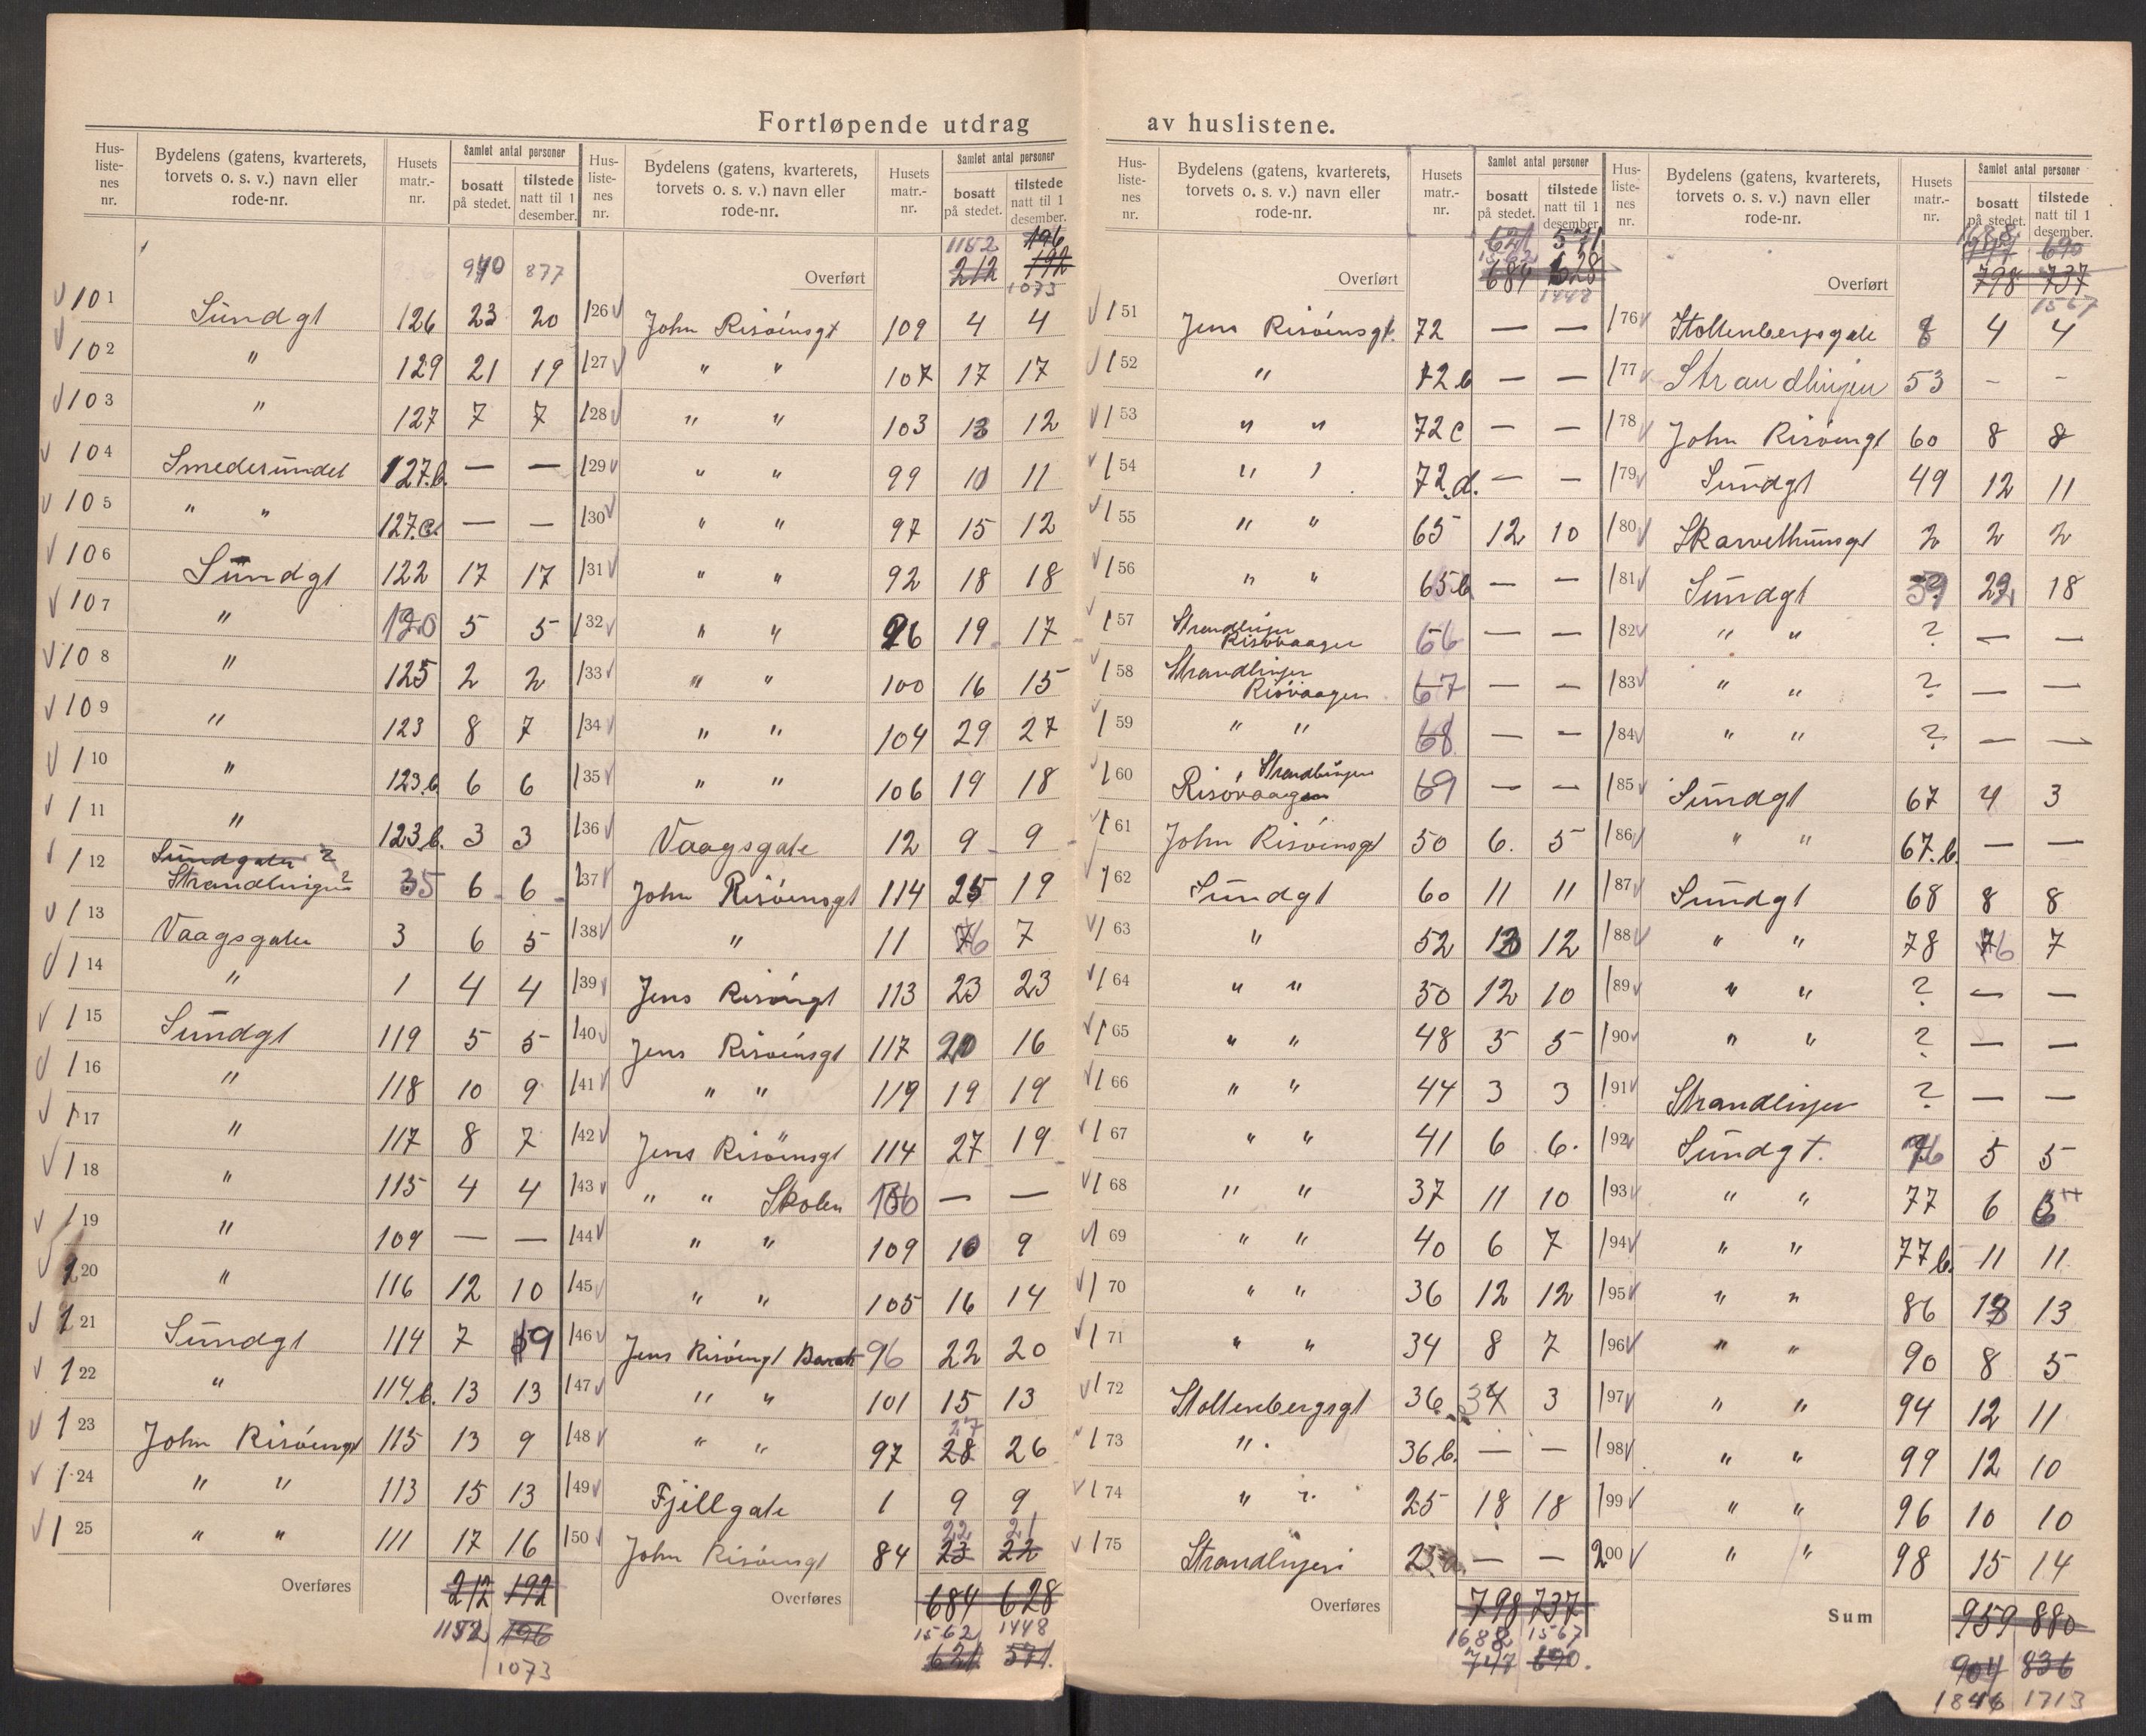 Fortløpende utdrag av huslistene.
Hus-liste-nes nr. Bydelens (gatens, kvarterets, torvets o. s. v.) navn eller rode-nr. Husets matr.-nr. Samlet antal personer bosatt på stedet. tilstede natt til 1 desember.
940 877
101 Sundgt 126 23 20
102 " 129 21 19
103 " 127 7 7
104 Smedesundet 127.b. — —
105 " " 127.c. — —
106 Sundgt 122 17 17
107 " 120 5 5
108 " 125 2 2
109 " 123 8 7
110 " 123.b. 6 6
111 " 123.b. 3 3
112 Sundgaten ?
Strandlinjen ? 35 6 6
113 Vaagsgaten 3 6 5
114 " 1 4 4
115 Sundgt 119 5 5
116 " 118 10 9
117 " 117 8 7
118 " 115 4 4
119 " 109 — —
120 " 116 12 10
121 Sundgt 114 7 9
122 " 114.b. 13 13
123 John Risöensgt 115 13 9
124 " " 113 15 13
125 " " 111 17 16
Overføres 212 192
1152 196
1073
Hus-liste-nes nr. Bydelens (gatens, kvarterets, torvets o. s. v.) navn eller rode-nr. Husets matr.-nr. Samlet antal personer bosatt på stedet. tilstede natt til 1 desember.
1152 196
Overført 212 192
1073
126 John Risöensgt 109 4 4
127 " " 107 17 17
128 " " 103 13 12
129 " " 99 10 11
130 " " 97 15 12
131 " " 92 18 18
132 " " 96 19 17
133 " " 100 16 15
134 " " 104 29 27
135 " " 106 19 18
136 Vaagsgate 12 9 9
137 John Risöensgt 114 25 19
138 " 11 6 7
139 Jens Risöengt 113 23 23
140 Jens Risöensgt 117 20 16
141 " " 119 19 19
142 Jens Risöensgt 114 27 19
143 " " Skolen 106 — —
144 " " 109 10 9
145 " " 105 16 14
146 Jens Risöengt 96 22 20
147 " " 101 15 13
27
148 " " 97 28 26
149 Fjellgate 1 9 9
22 21
150 John Risöensgt 84 23 22
Overføres 684 628
1562 1448
621 571.
Hus-liste-nes nr. Bydelens (gatens, kvarterets, torvets o. s. v.) navn eller rode-nr. Husets matr.-nr. Samlet antal personer bosatt på stedet. tilstede natt til 1 desember.
621 571
1562
Overført 684 628
1448
151 Jens Risöensgt. 72 — —
152 " 72 b — —
153 " " 72 c — —
154 " " 72.d. — —
155 " " 65 12 10
156 " " 65.b — —
157 Strandlinjen
Risövaagen 66 — —
158 Strandlinjen
Risövaagen 67 — —
159 " " 68 — —
160 Strandlinjen
Risövaagen 69 — —
161 John Risöensgt 50 6. 5
162 Sundgt 60 11 11
163 " 52 13 12
164 " " 50 12 10
165 " " 48 5 5
166 " " 44 3 3
167 " " 41 6 6.
168 " " 37 11 10
169 " " 40 6 7
170 " " 36 12 12
171 " " 34 8 7
172 Stoltenbergsgt 36. 3 3
173 " 36 b. — —
174 " " 25 18 18
175 Strandlinjen 25.a. — —
Overføres 798 737
1688 1567
747 690.
Hus-liste-nes nr. Bydelens (gatens, kvarterets, torvets o. s. v.) navn eller rode-nr. Husets matr.-nr. Samlet antal personer bosatt på stedet. tilstede natt til 1 desember.
1688
747 690
Overført 798 737
1567
176 Stoltenbergsgate 8 4 4
177 Strandlinjen 53 - -
178 John Risöengt 60 8 8
179 Sundgt 49 12 11
180 Skarvethunsgt 2 2 2
181 Sundgt 59 22 18
182 " " ? — —
183 " " ? — —
184 " " ? — —
185 Sundgt 67 4 3
186 " " 67.b. — —
187 Sundgt 68 8 8
188 " " 78 6 7
189 " " ? — —
190 " " ? — —
191 Strandlinjen ? — —
192 Sundgt. 76 5 5
193 " " 77 6 6
194 " " 77 b. 11 11
195 " " 86 13 13
196 " " 90 8 5
197 " " 94 12 11
198 " " 99 12 10
199 " " 96 10 10
200 " " 98 15 14
Sum 959 880
904 836
1846 1713